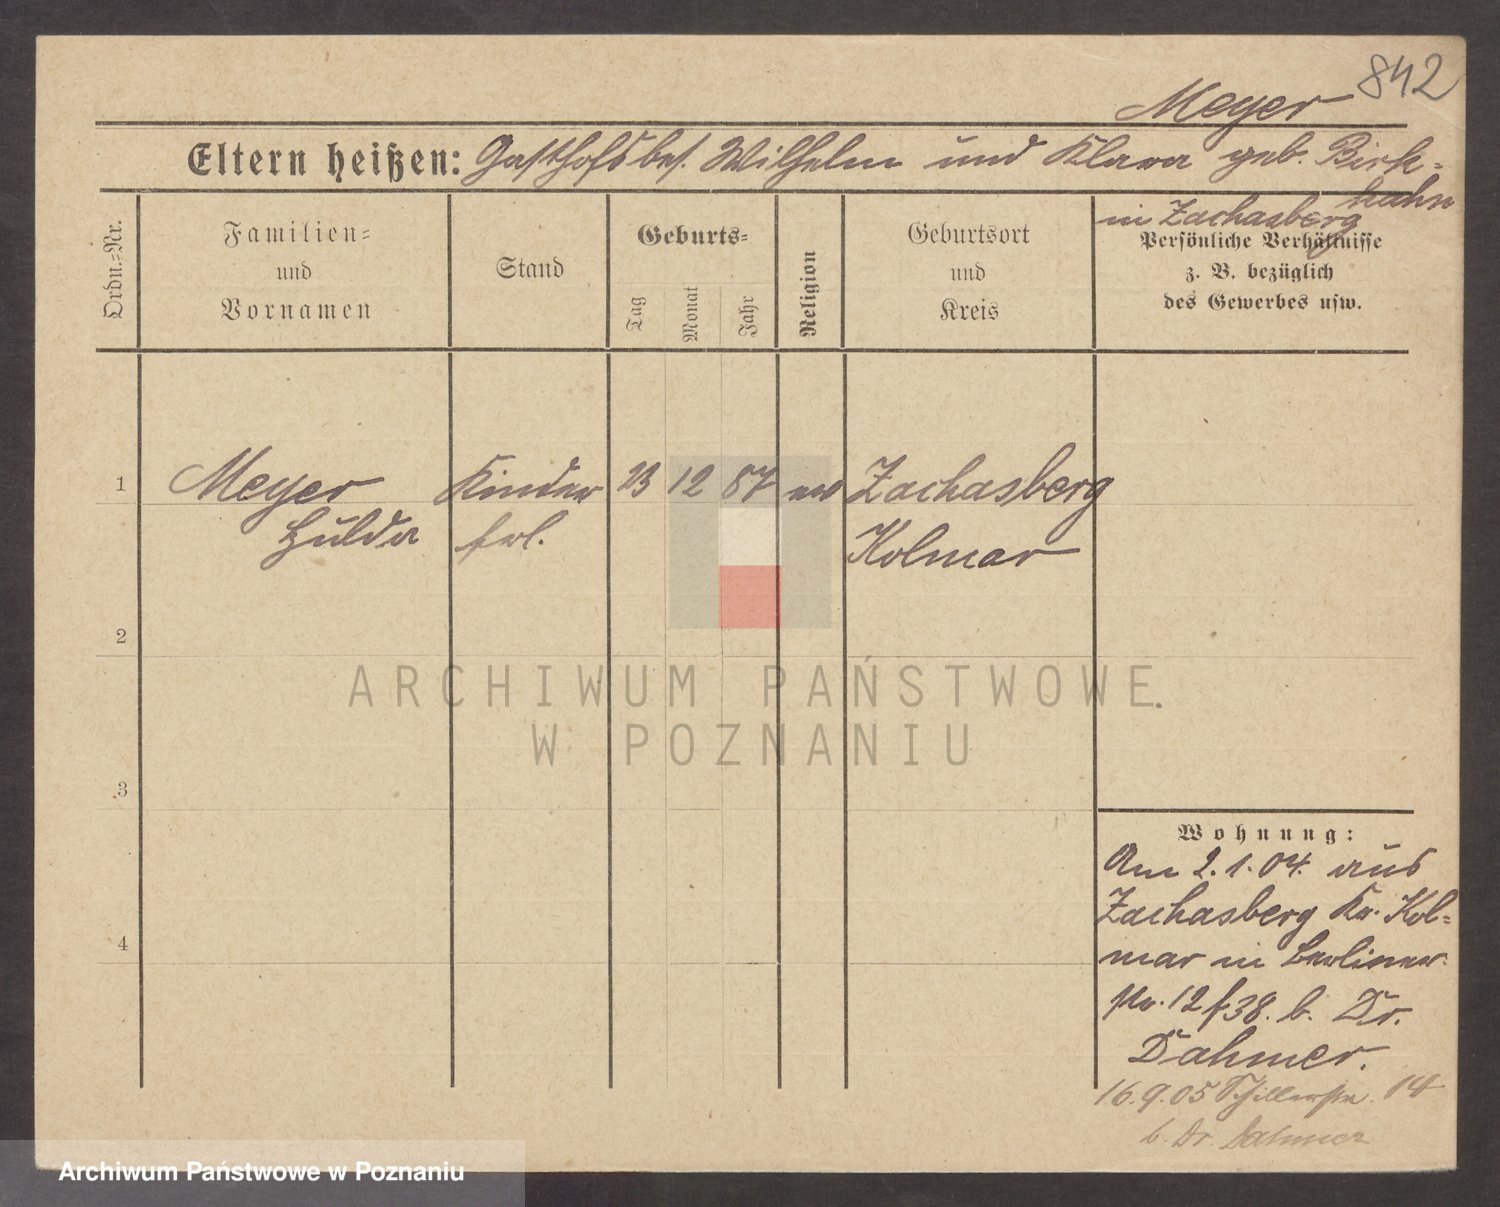 842
Meyer
Eltern heißen: Gasthofsbes. Wilhelm und Klara geb. Birk-
hahn
in Zachasberg
Ordn.-Nr.
Familien-
und
Vornamen
Stand
Geburts-
Tag
Monat
Jahr
Religion
Geburtsort
und
Kreis
Persönliche Verhältnisse
z. B. bezüglich
des Gewerbes usw.
1 Meyer Kinder 23 12 87 ev Zachasberg
Hulda frl. Kolmar
2
ARCHIWUM PAŃSTWOWE
W POZNANIU
3
Wohnung:
Am 2.1.04. aus
Zachasberg Kr. Kol-
4
mar in Berliner-
str. 12 b. Dr.
Dahmer.
16.9.05 Schillerstr. 14
b. Dr. Dahmer
Archiwum Państwowe w Poznaniu